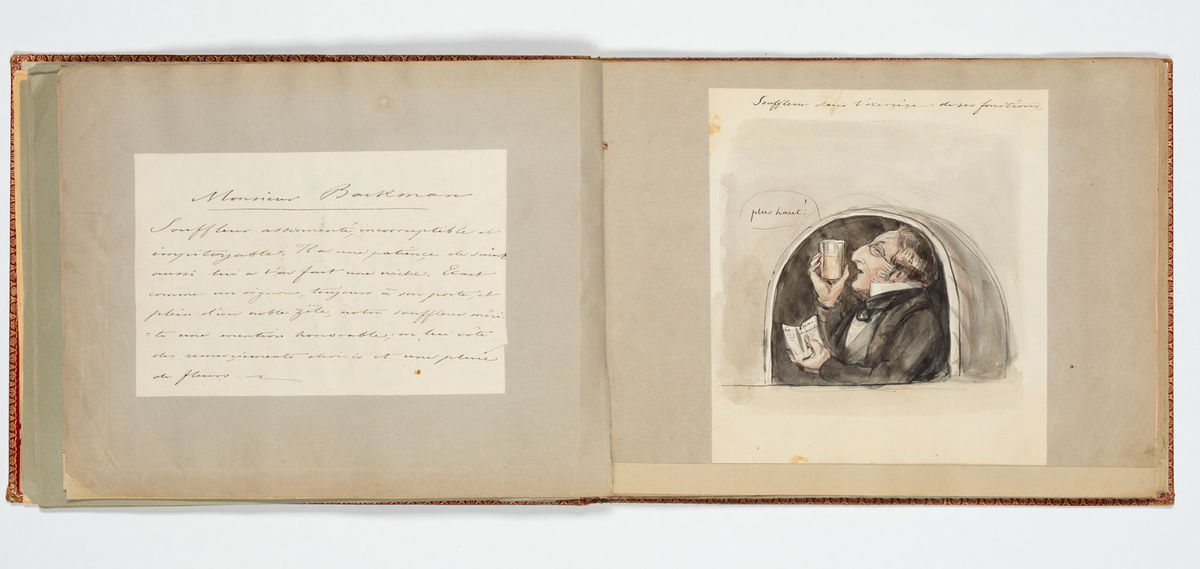 Monsieur Backman
Souffleur assermenté, incorruptible et
impitoyable. Il a une patience de saint
aussi lui a t'on fait une niche. Exact
comme un signore, toujours à son poste, et
plein d'un noble zèle, notre souffleur méri-
-te une mention honorable, on lui vote
des remerciments choisis et une pluie
de fleurs.
Souffleur dans l'exercice de ses fonctions.
plus haut!